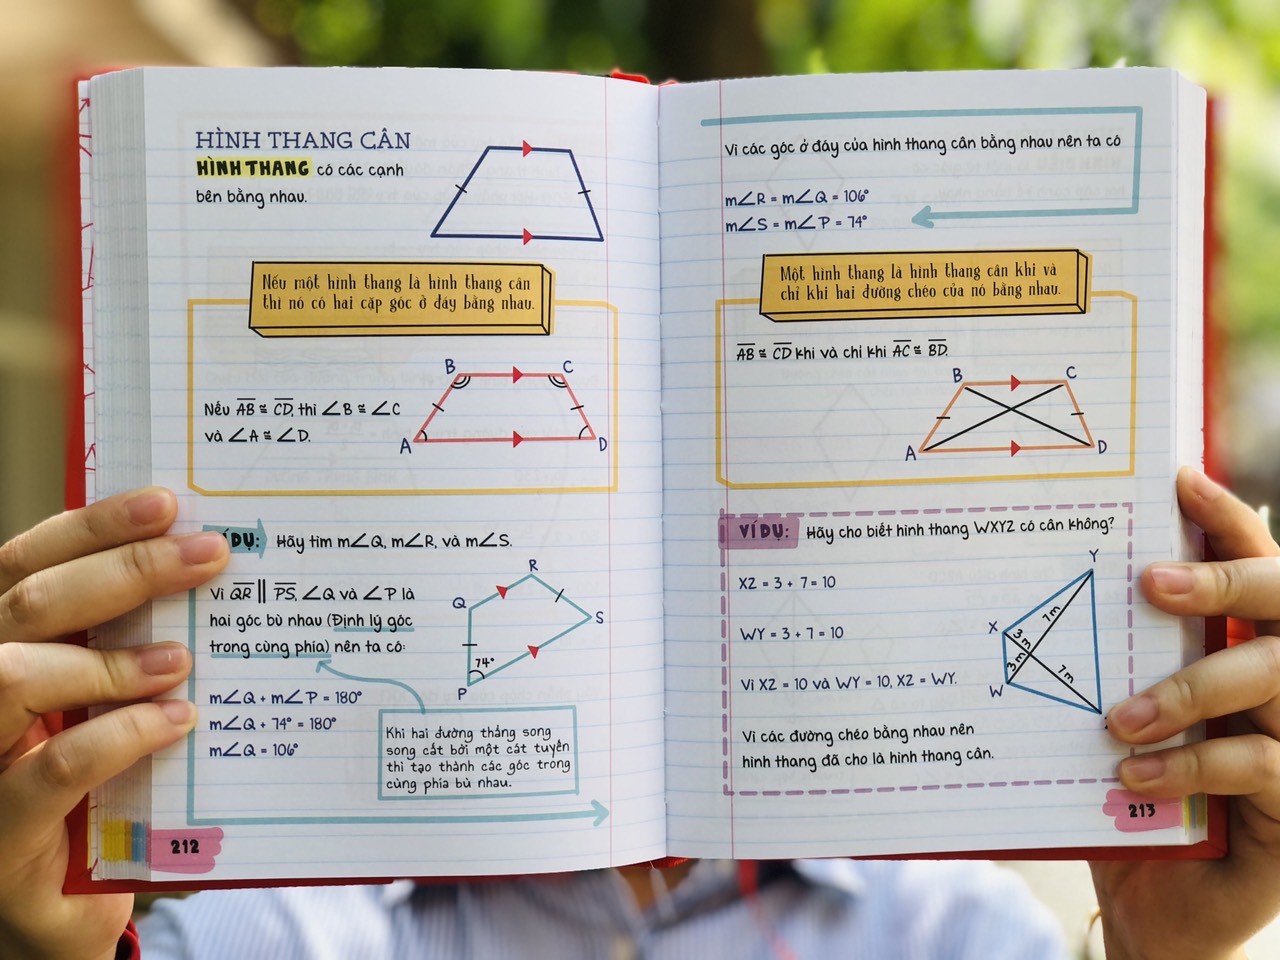 HÌNH THANG CÂN
HÌNH THANG có các cạnh
bên bằng nhau.
Nếu một hình thang là hình thang cân
thì nó có hai cặp góc ở đáy bằng nhau.
B
C
Nếu AB ≅ CD, thì ∠B ≅ ∠C
và ∠A ≅ ∠D.
A
D
DỤ: Hãy tìm m∠Q, m∠R, và m∠S.
Vì QR ∥ PS, ∠Q và ∠P là
hai góc bù nhau (Định lý góc
trong cùng phía) nên ta có:
R
Q
S
74°
P
m∠Q + m∠P = 180°
m∠Q + 74° = 180°
m∠Q = 106°
Khi hai đường thẳng song
song cắt bởi một cát tuyến
thì tạo thành các góc trong
cùng phía bù nhau.
212
Vì các góc ở đáy của hình thang cân bằng nhau nên ta có
m∠R = m∠Q = 106°
m∠S = m∠P = 74°
Một hình thang là hình thang cân khi và
chỉ khi hai đường chéo của nó bằng nhau.
AB ≅ CD khi và chỉ khi AC ≅ BD.
B
C
A
D
VÍ DỤ: Hãy cho biết hình thang WXYZ có cân không?
XZ = 3 + 7 = 10
WY = 3 + 7 = 10
Vì XZ = 10 và WY = 10, XZ = WY.
Vì các đường chéo bằng nhau nên
hình thang đã cho là hình thang cân.
Y
X
7m
3m
3m
7m
W
213